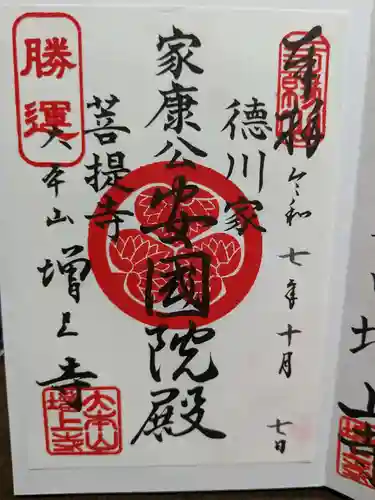 奉拝
令和七年十月七日
徳川家
家康公
安國院殿
菩提寺
勝運
大本山
増上寺
大本山
増上寺
上寺